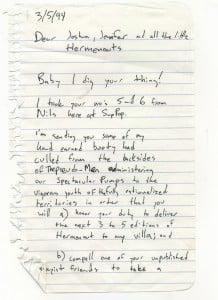 3/5/94
Dear Joshua, Jennifer and all the little
Hermenauts
Baby I dig your thing!
I took your no's 5 and 6 from
Nils here at SubPop.
I'm sending you some of my
hard earned booty had
culled from the backsides
of The Pseudo-Men administering
our Spectacular Pumps to the
vigorous youth of rationalized
territories in order that you
will a) honor your duty to deliver
the next 3 to 5 editions of
Hermenaut to my villa; and
b) compell one of your unpublished
friends to take a